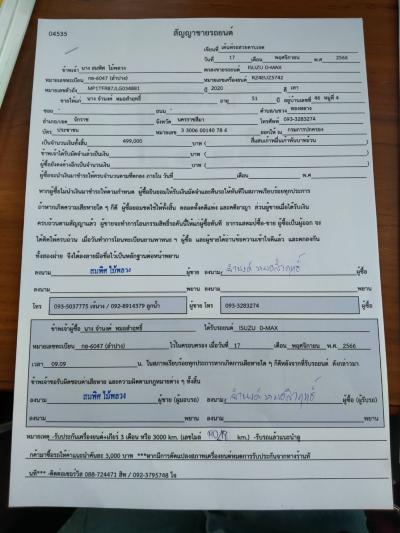 04535 สัญญาขายรถยนต์
เขียนที่ เต็นท์รถสวยตาบอด
วันที่ 17 เดือน พฤศจิกายน พ.ศ 2566
ข้าพเจ้า นาง สมพิศ ไม้พลวง ตกลงขายรถยนต์ ISUZU D-MAX
หมายเลขทะเบียน กธ-6047 (ลำปาง) หมายเลขเครื่องยนต์ RZ4EUZ5742
หมายเลขตัวถัง MP1TFR87JLG034881 ปี 2020 สี เทา
ขายให้แก่ นาง จำนงค์ หมอสำฤทธิ์ อายุ 51 ปี อยู่บ้านเลขที่ 46 หมู่ที่ 4
ซอย ถนน ตำบล/แขวง ทองหลาง
อำเภอ/เขต จักราช จังหวัด นครราชสีมา โทรศัพท์ 093-3283274
บัตร ประชาชน หมายเลข 3 3006 00140 78 4 ออกให้ ณ กรมการปกครอง
เป็นจำนวนเงินทั้งสิ้น 499,000 บาท ( สี่แสนเก้าหมื่นเก้าพันบาทถ้วน
ข้าพเจ้าได้รับมัดจำแล้วเป็นเงิน บาท (
ผู้ซื้อยังคงค้างอีกเป็นจำนวนเงิน บาท (
ผู้ซื้อจะนำเงินมาชำระให้ครบจำนวนตามที่ตกลง ภายใน วันที่ เดือน พ.ศ
หากผู้ซื้อไม่นำเงินมาชำระให้ตามกำหนด ผู้ซื้อยินยอมให้รับเงินมัดจำและคืนรถให้ทันทีในสภาพเรียบร้อยทุกประการ
ถ้าหากเกิดความเสียหายใด ๆ ก็ดี ผู้ซื้อยอมชดใช้ให้ทั้งสิ้น ตลอดทั้งคดีแพ่ง และคดีอาญา ส่วนผู้ขายเมื่อได้รับเงิน
ครบถ้วนตามสัญญาแล้ว ผู้ขายจะทำการโอนกรรมสิทธิ์รถคันนี้ให้แก่ผู้ซื้อทันที
ทั้งสองฝ่าย จึงได้ลงลายมือชื่อไว้เป็นหลักฐานต่อหน้าพยาน
ลงนาม สมพิศ ไม้พลวง ผู้ขาย ลงนาม จำนงค์ หมอสำฤทธิ์ ผู้ซื้อ
ลงนาม พยาน ลงนาม พยาน
โทร 093-5037775 เจ้นาง / 092-8914379 ลูกน้ำ ผู้ขาย โทร 093-3283274 ผู้ซื้อ
ข้าพเจ้าผู้ซื้อ นาง จำนงค์ หมอสำฤทธิ์ ได้รับรถยนต์ ISUZU D-MAX
หมายเลขทะเบียน กธ-6047 (ลำปาง) ไว้ในครอบครอง เมื่อวันที่ 17 เดือน พฤศจิกายน พ.ศ. 2566
เวลา 09.09 น. ในสภาพเรียบร้อยทุกประการหากเกิดการเสียหายใด ๆ ก็ดีหลังจากที่รับรถยนต์ ดังกล่าวมา
ข้าพเจ้าขอรับผิดชอบค่าเสียหาย และความผิดตามกฎหมายต่าง ๆ ทั้งสิ้น
ลงนาม สมพิศ ไม้พลวง ผู้ขาย (ผู้มอบรถ) ลงนาม จำนงค์ หมอสำฤทธิ์ ผู้ซื้อ (ผู้รับรถ)
ลงนาม พยาน ลงนาม พยาน
หมายเหตุ -รับประกันเครื่องยนต์+เกียร์ 3 เดือน หรือ 3000 km. (เลขไมล์ km.) -รับรถแล้วแนะนำลู
กค้ามาซื้อรถให้ค่าแนะนำคันละ 3,000 บาท ***หากมีการดัดแปลงสภาพเครื่องยนต์หมดการรับประกันจากทางร้านทั
นที*** -ติดต่อเซอร์วิส 088-724471 สิพ / 092-3795748 โจ